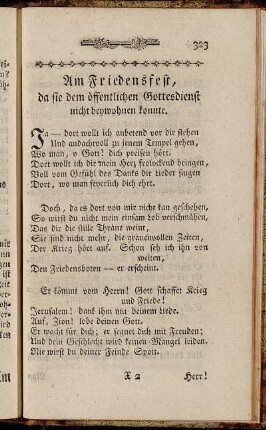 323
Am Friedensfest,
da sie dem öffentlichen Gottesdienst
nicht beywohnen konnte.
Ja — dort wollt ich anbetend vor dir stehen
Und andachtvoll zu jenem Tempel gehen,
Wo man, o Gott! dich preisen hört.
Dort wollt ich dir mein Herz frolockend bringen,
Voll vom Gefühl des Danks dir Lieder singen
Dort, wo man feyerlich dich ehrt.
Doch, da es dort von mir nicht kan geschehen,
So wirst du nicht mein einsam Lob verschmähen,
Das dir die stille Thräne weint,
Sie sind nicht mehr, die grauenvollen Zeiten,
Der Krieg hört auf. Schon seh ich ihn von
weiten,
Den Friedensboten — er erscheint.
Er kömmt vom Herrn! Gott schaffet Krieg
und Friede!
Jerusalem! dank ihm mit deinem Liede.
Auf, Zion! lobe deinen Gott.
Er wacht für dich; er segnet dich mit Freuden;
Und dein Geschlecht wird keinen Mangel leiden.
Nie wirst du deiner Feinde Spott.
X 2
Herr!